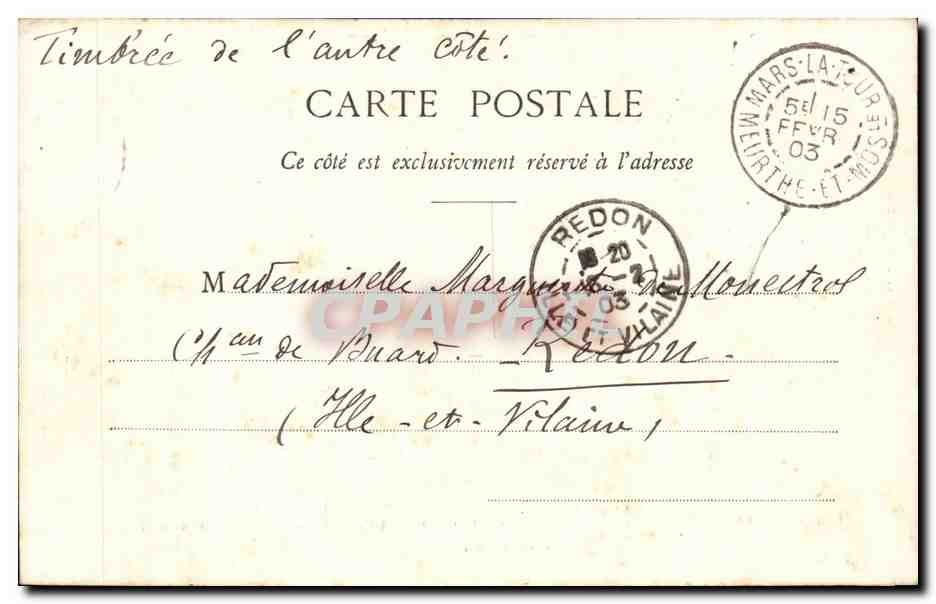 Timbrée de l'autre côté!
CARTE POSTALE
Ce côté est exclusivement réservé à l'adresse
MARS-LA-TOUR
5E 15
FEVR
03
MEURTHE-ET-MOSELLE
REDON
20
2
03
ET VILAINE
Mademoiselle Marguerite
CPAPHIL
Chau de Buard. - Redon -
(Ille-et-Vilaine)